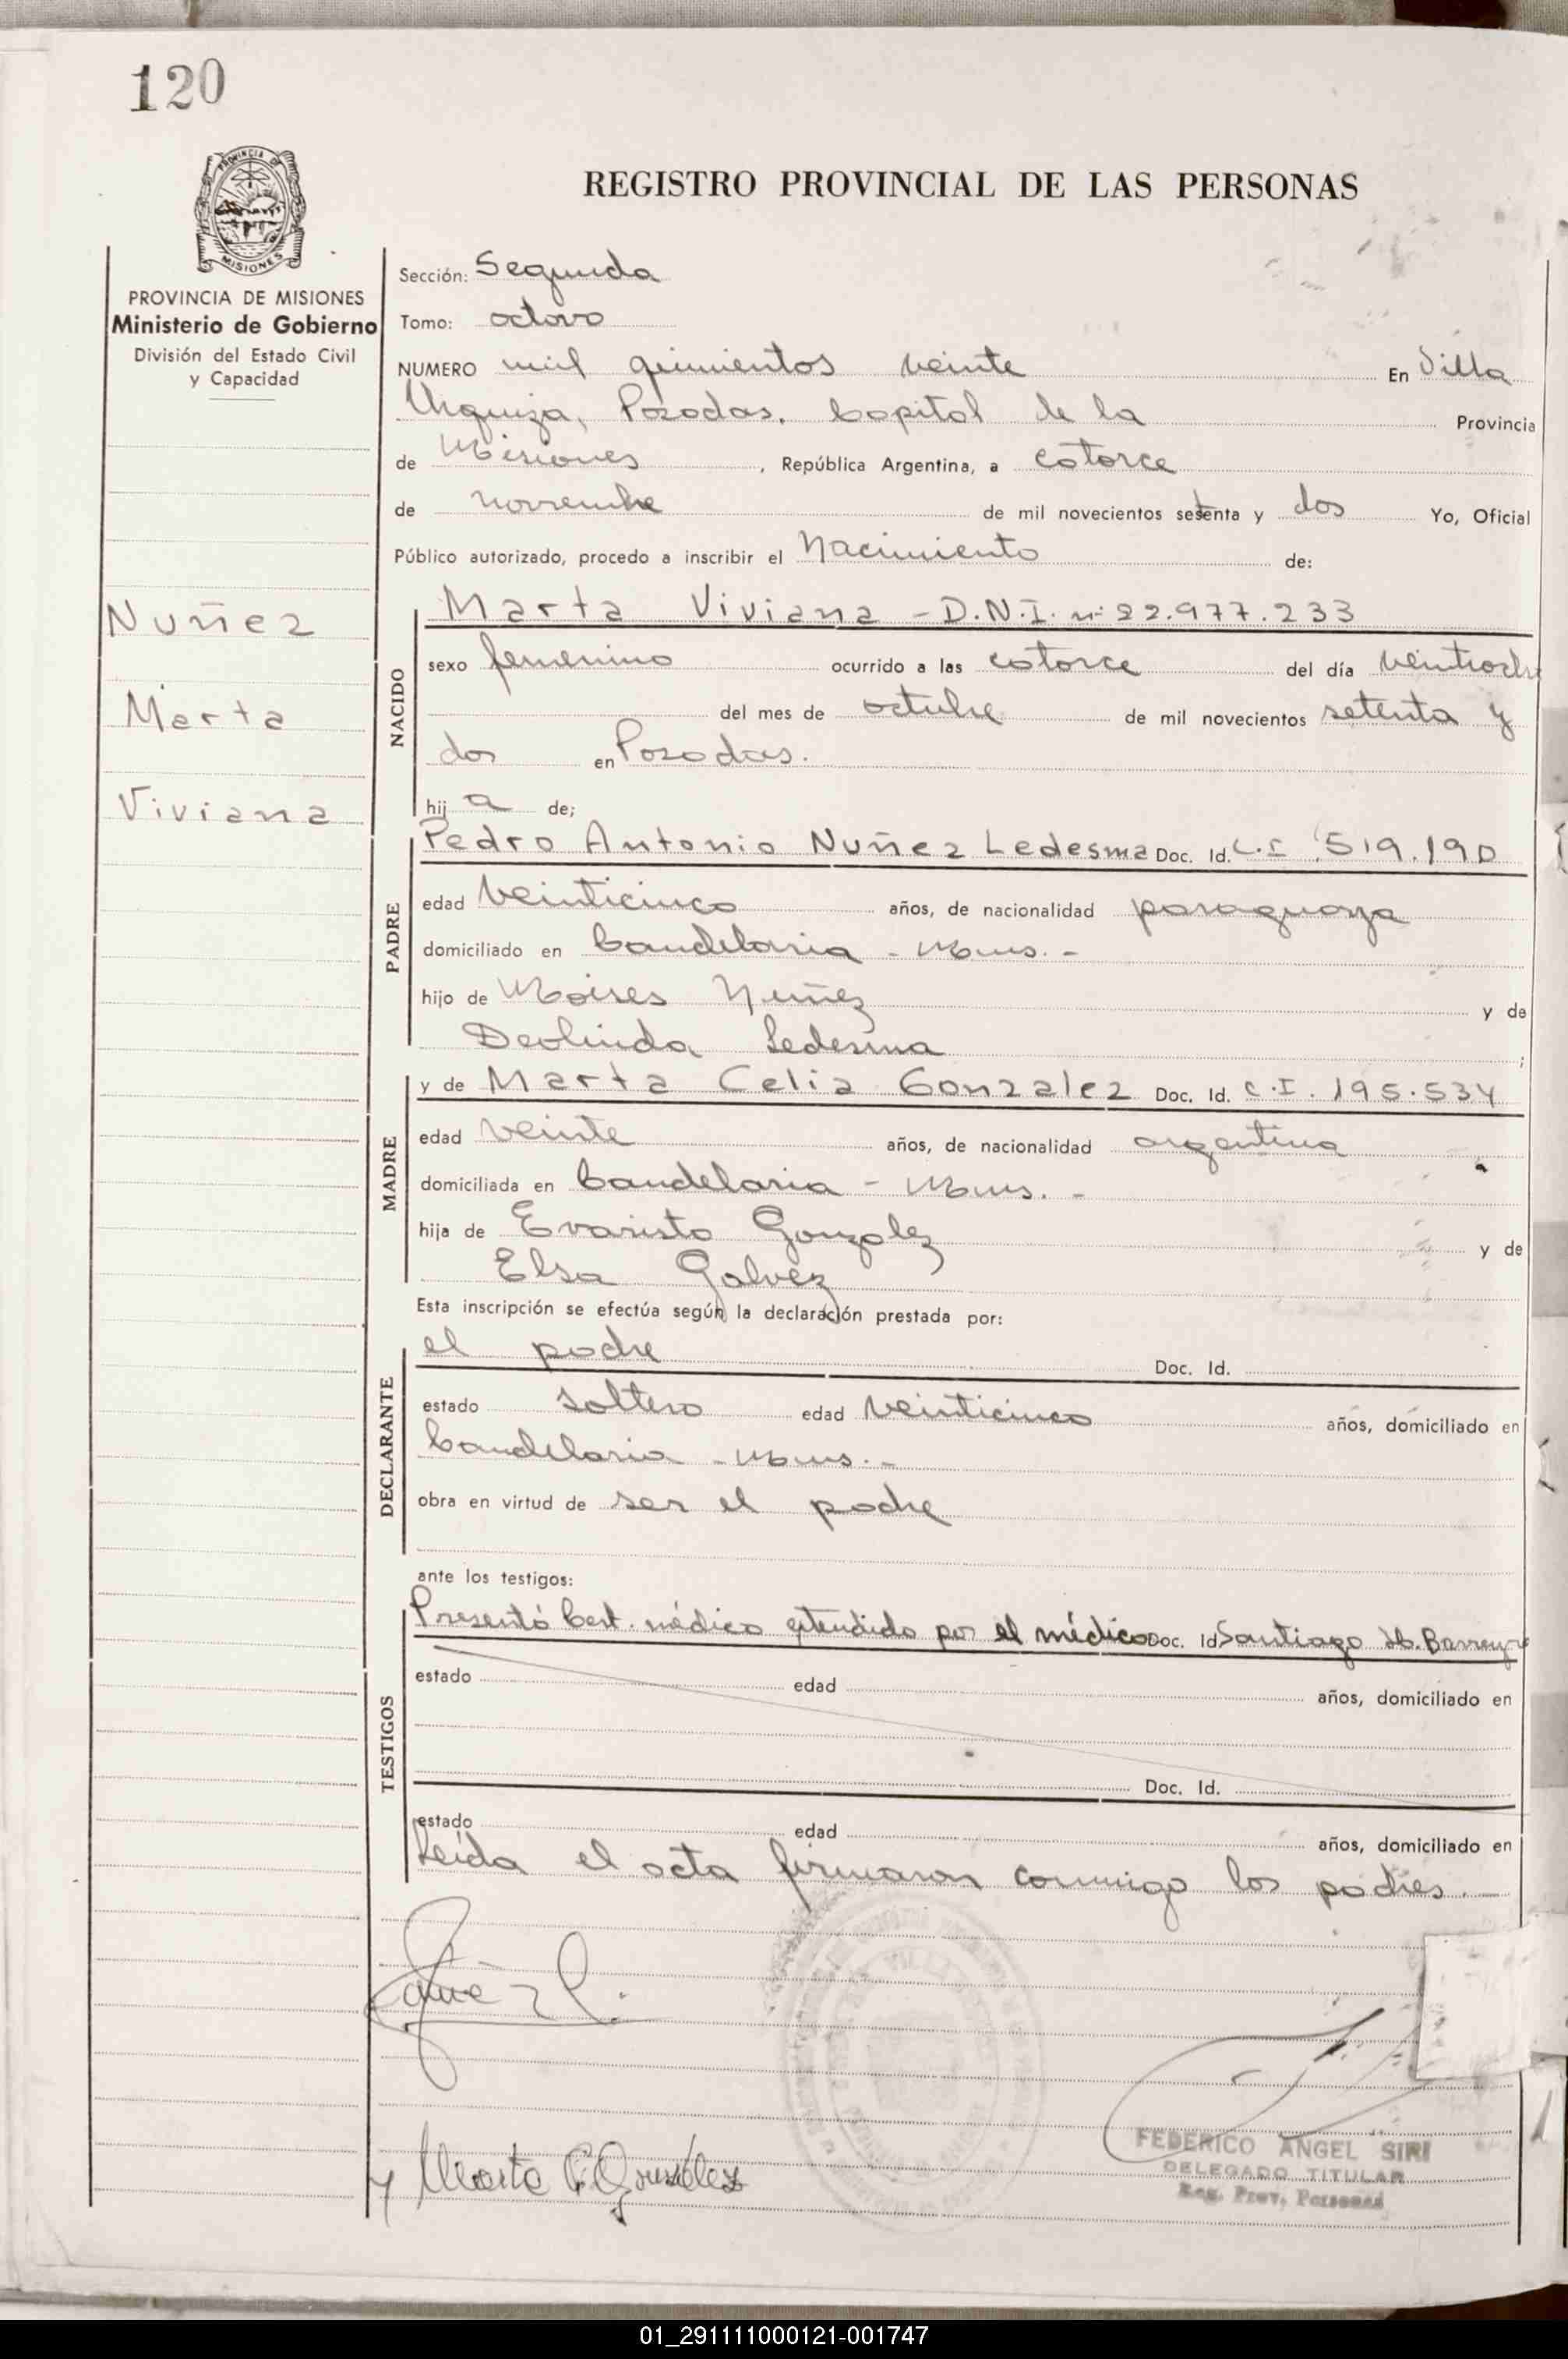 120
REGISTRO PROVINCIAL DE LAS PERSONAS
PROVINCIA DE MISIONES
Ministerio de Gobierno
División del Estado Civil
y Capacidad
Nuñez
Marta
Viviana
Sección: Segunda
Tomo: octavo
NUMERO mil quinientos veinte En Villa
Urquiza, Posadas, Capital de la Provincia
de Misiones, República Argentina, a catorce
de noviembre de mil novecientos setenta y dos Yo, Oficial
Público autorizado, procedo a inscribir el Nacimiento de:
NACIDO
Marta Viviana - D.N.I. nº 22.977.233
sexo femenino ocurrido a las catorce del día veintiocho
del mes de octubre de mil novecientos setenta y
dos en Posadas.
hija de;
PADRE
Pedro Antonio Nuñez Ledesma Doc. Id. C.I 519.190
edad veinticinco años, de nacionalidad paraguaya
domiciliado en Candelaria - Mnes. -
hijo de Moises Nuñez y de
Deolinda Ledesma ;
MADRE
y de Marta Celia Gonzalez Doc. Id. C.I. 195.534
edad veinte años, de nacionalidad argentina
domiciliada en Candelaria - Mnes. -
hija de Evaristo Gonzalez y de
Elsa Galvez
Esta inscripción se efectúa según la declaración prestada por:
DECLARANTE
el padre Doc. Id.
estado soltero edad veinticinco años, domiciliado en
Candelaria - Mnes. -
obra en virtud de ser el padre
ante los testigos:
TESTIGOS
Presentó Cert. médico extendido por el médico Doc. Id Santiago H. Barreyro
estado edad años, domiciliado en
Doc. Id.
estado edad años, domiciliado en
Leída el acta firmaron conmigo los padres.
Marta C. González
FEDERICO ANGEL SIRI
DELEGADO TITULAR
Reg. Prov. Personas
01_291111000121-001747